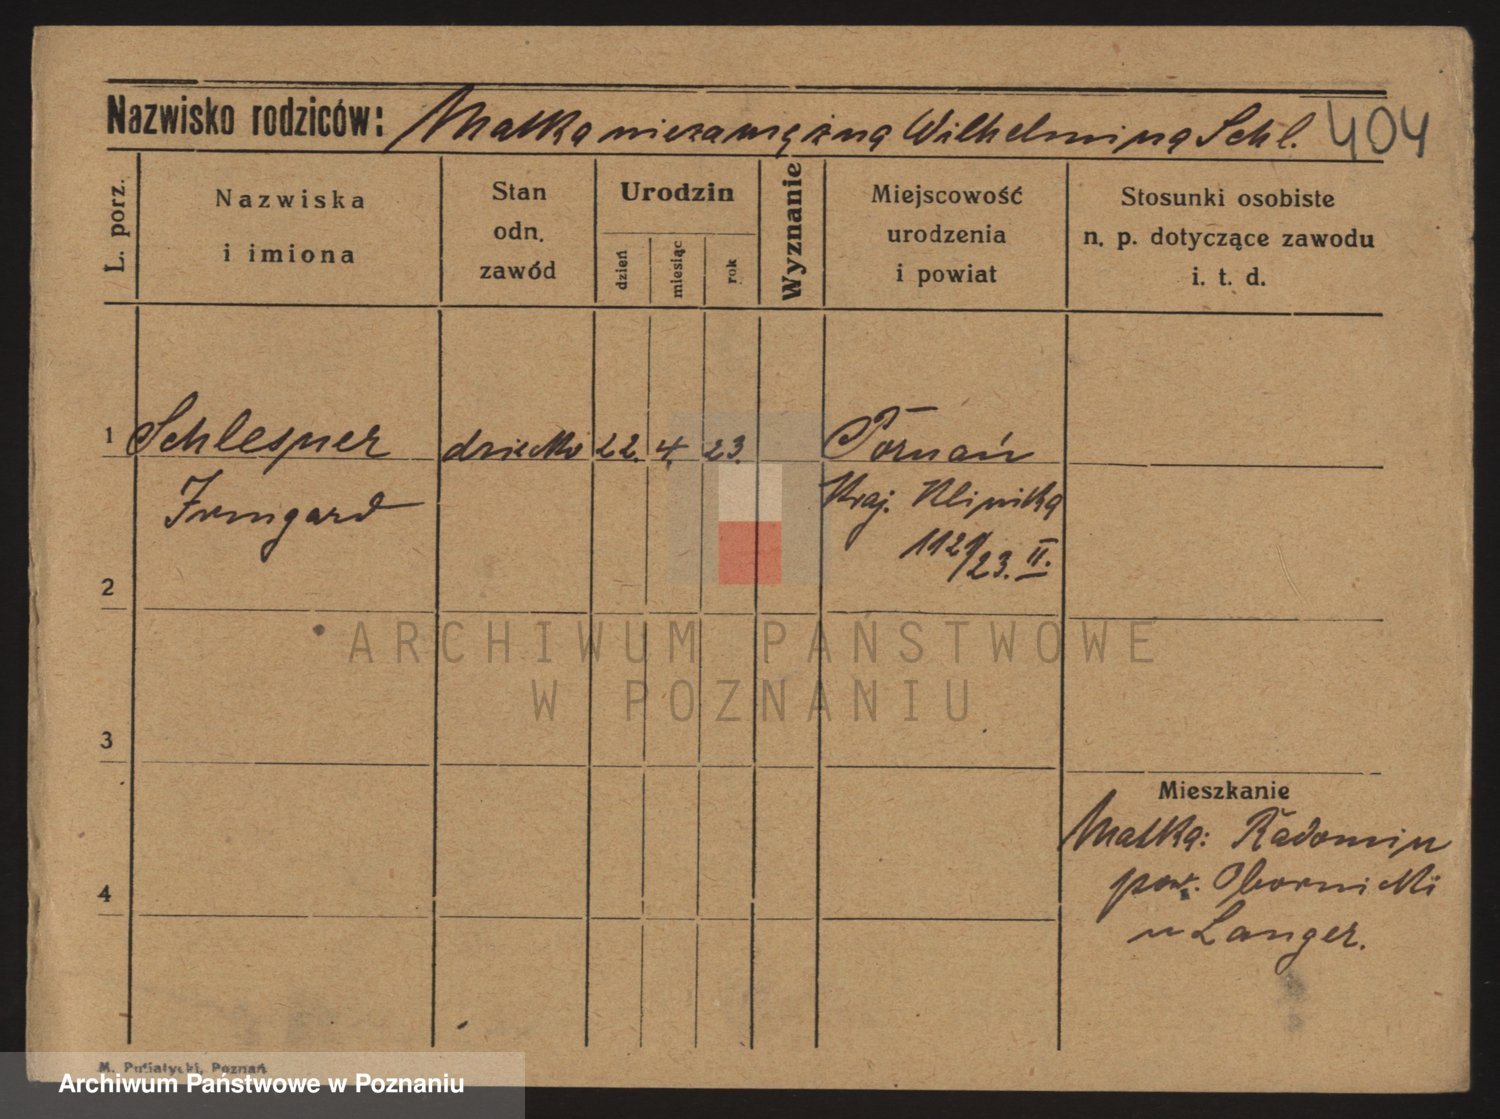 Nazwisko rodziców: Matka niezamężna Wilhelmina Schl. 404
L. porz.
Nazwiska
i imiona
Stan
odn.
zawód
Urodzin
dzień
miesiąc
rok
Wyznanie
Miejscowość
urodzenia
i powiat
Stosunki osobiste
n. p. dotyczące zawodu
i. t. d.
1 Schlesner dziecko 22. 4. 23. Poznań
Irmgard Kraj. Klinika
1121/23. II.
2
ARCHIWUM PAŃSTWOWE
W POZNANIU
3
Mieszkanie
Matka: Radomin
pow. Obornicki
u Langer.
4
M. Putiatycki, Poznań
Archiwum Państwowe w Poznaniu